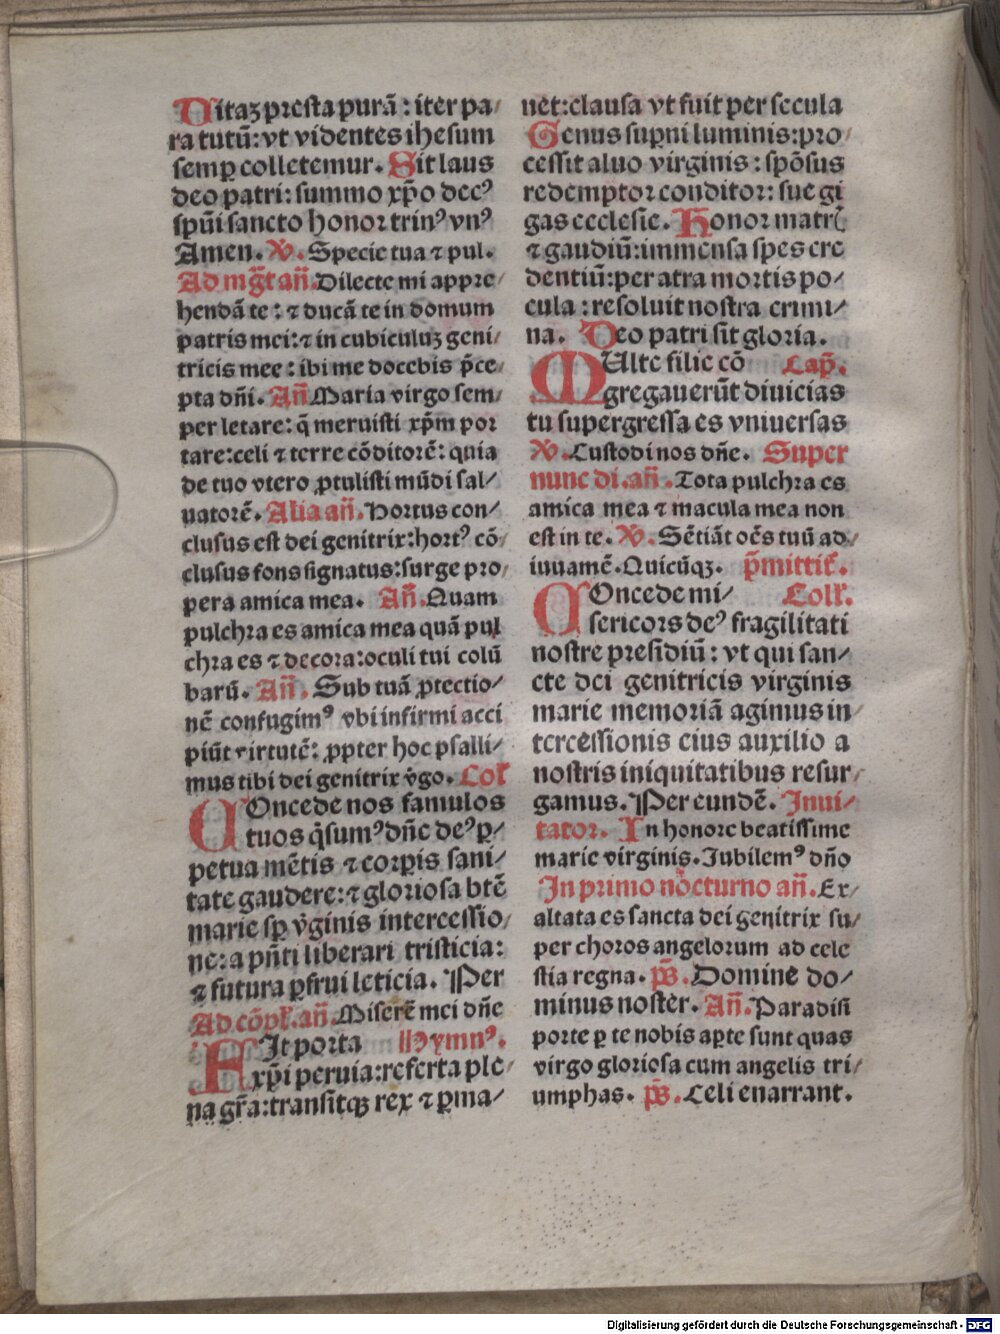 Uitaʒ presta purā: iter pa/
ra tutū: vt videntes ihesum
semꝑ colletemur. Sit laus
deo patri: summo xp̄o decꝰ
spūi sancto honor trinꝰ vnꝰ
Amen. ℣. Specie tua ⁊ pul.
Ad mg̃t añ. Dilecte mi appre/
hendā te: ⁊ ducā te in domum
patris mei: ⁊ in cubiculuʒ geni/
tricis mee: ibi me docebis p̄ce/
pta dñi. Añ. Maria virgo sem/
per letare: q̄ meruisti xp̄m por
tare: celi ⁊ terre cōditorē: quia
de tuo vtero ꝓtulisti mūdi sal/
uatorē. Alia añ. Hortus con/
clusus est dei genitrix: hortꝰ cō/
clusus fons signatus: surge pro/
pera amica mea. Añ. Quam
pulchra es amica mea quā pul
chra es ⁊ decora: oculi tui colū
barū. Añ. Sub tuā ꝓtectio/
nē confugimꝰ vbi infirmi acci
piūt virtutē: ꝓpter hoc psalli/
mus tibi dei genitrix v̄go. Coł
COncede nos famulos
tuos q̄sumꝰ dñe deꝰ ꝑ/
petua mētis ⁊ corꝑis sani/
tate gaudere: ⁊ gloriosa btē
marie sꝑ v̄ginis intercessio/
ne: a pñti liberari tristicia:
⁊ futura ꝑfrui leticia. Per
Ad cōpł. añ. Miserē mei dñe
FIt porta Hymnꝰ.
xp̄i peruia: referta ple/
na gr̄a: transitqꝫ rex ⁊ ꝑma/
net: clausa vt fuit per secula
Genus suꝑni luminis: pro/
cessit aluo virginis: spōsus
redemptor conditor: sue gi
gas ecclesie. Honor matri
⁊ gaudiū: immensa spes cre
dentiū: per atra mortis po/
cula: resoluit nostra crimi/
na. Deo patri sit gloria.
MUlte filie cō Cap̄.
gregauerūt diuicias
tu supergressa es vniuersas
℣. Custodi nos dñe. Super
nunc di. añ. Tota pulchra es
amica mea ⁊ macula mea non
est in te. ℣. Sētiāt oēs tuū ad/
iuuamē. Quicūqꝫ. p̄mittit̄.
COncede mi/ Coll̄.
sericors deꝰ fragilitati
nostre presidiū: vt qui san/
cte dei genitricis virginis
marie memoriā agimus in/
tercessionis eius auxilio a
nostris iniquitatibus resur/
gamus. Per eundē. Inui/
tator. In honore beatissime
marie virginis. Jubilemꝰ dño
In primo nocturno añ. Ex/
altata es sancta dei genitrix su/
per choros angelorum ad cele
stia regna. p̄s. Domine do/
minus noster. Añ. Paradisi
porte ꝑ te nobis aꝑte sunt quas
virgo gloriosa cum angelis tri/
umphas. p̄s. Celi enarrant.
Digitalisierung gefördert durch die Deutsche Forschungsgemeinschaft - DFG